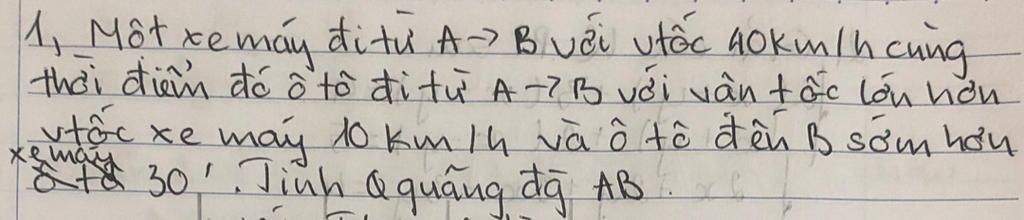 1, Một xe máy đi từ A → B với vtốc 40km/h cùng
thời điểm đó ô tô đi từ A → B với vân tốc lớn hơn
vtốc xe máy 10 km/h và ô tô đến B sớm hơn
xe máy 30'. Tính Q quãng đg AB.